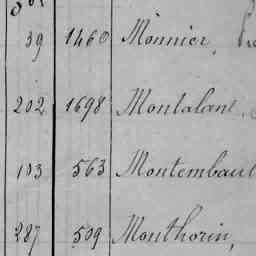 39 1460 Monnier,
202 1698 Montalant,
103 563 Montembault
287 509 Monthorin,